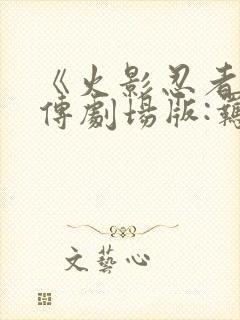 《火影忍者
傳劇場版:羈
文藝心